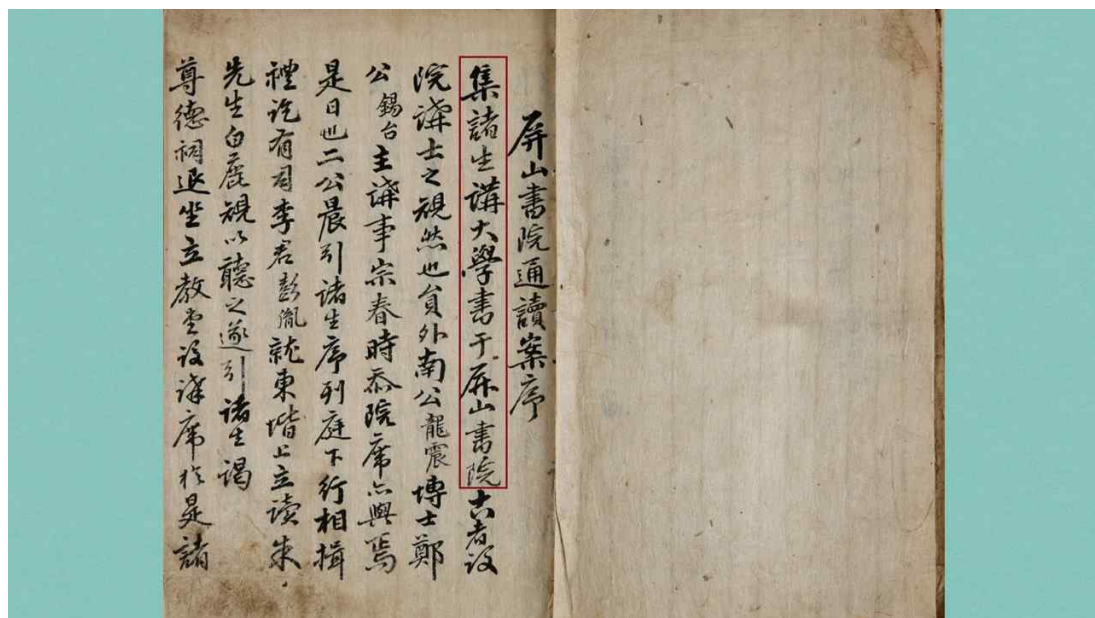 屏山書院通讀案序
集諸生講大學書于屏山書院古者設
院講士之規然也貟外南公龍震博士鄭
公錫台主講事宗春時忝院席亦與焉
是日也二公晨引諸生序列庭下行相揖
禮訖有司李君彭胤就東堦上立讀朱
先生白鹿規以聽之遂引諸生謁
尊德祠退坐立教堂設講席於是諸